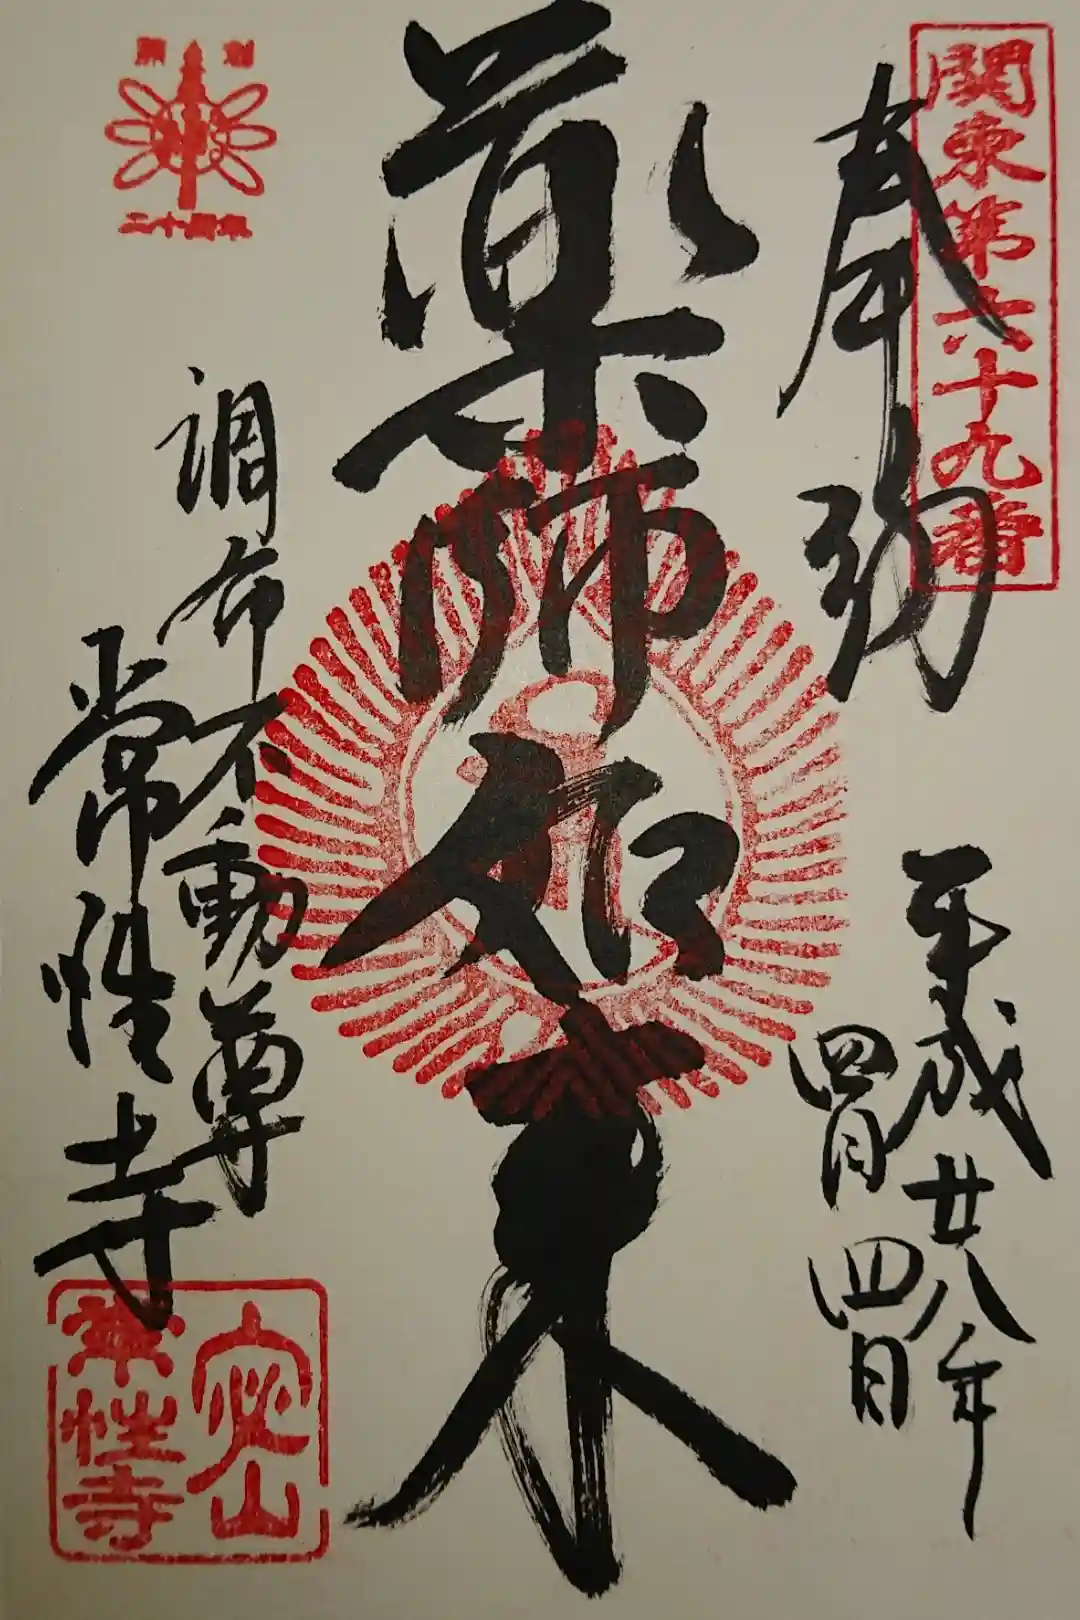 関東第六十九番
奉納
平成廿八年
四月四日
薬師如来
調布不動尊
常性寺
二十周年
常性寺